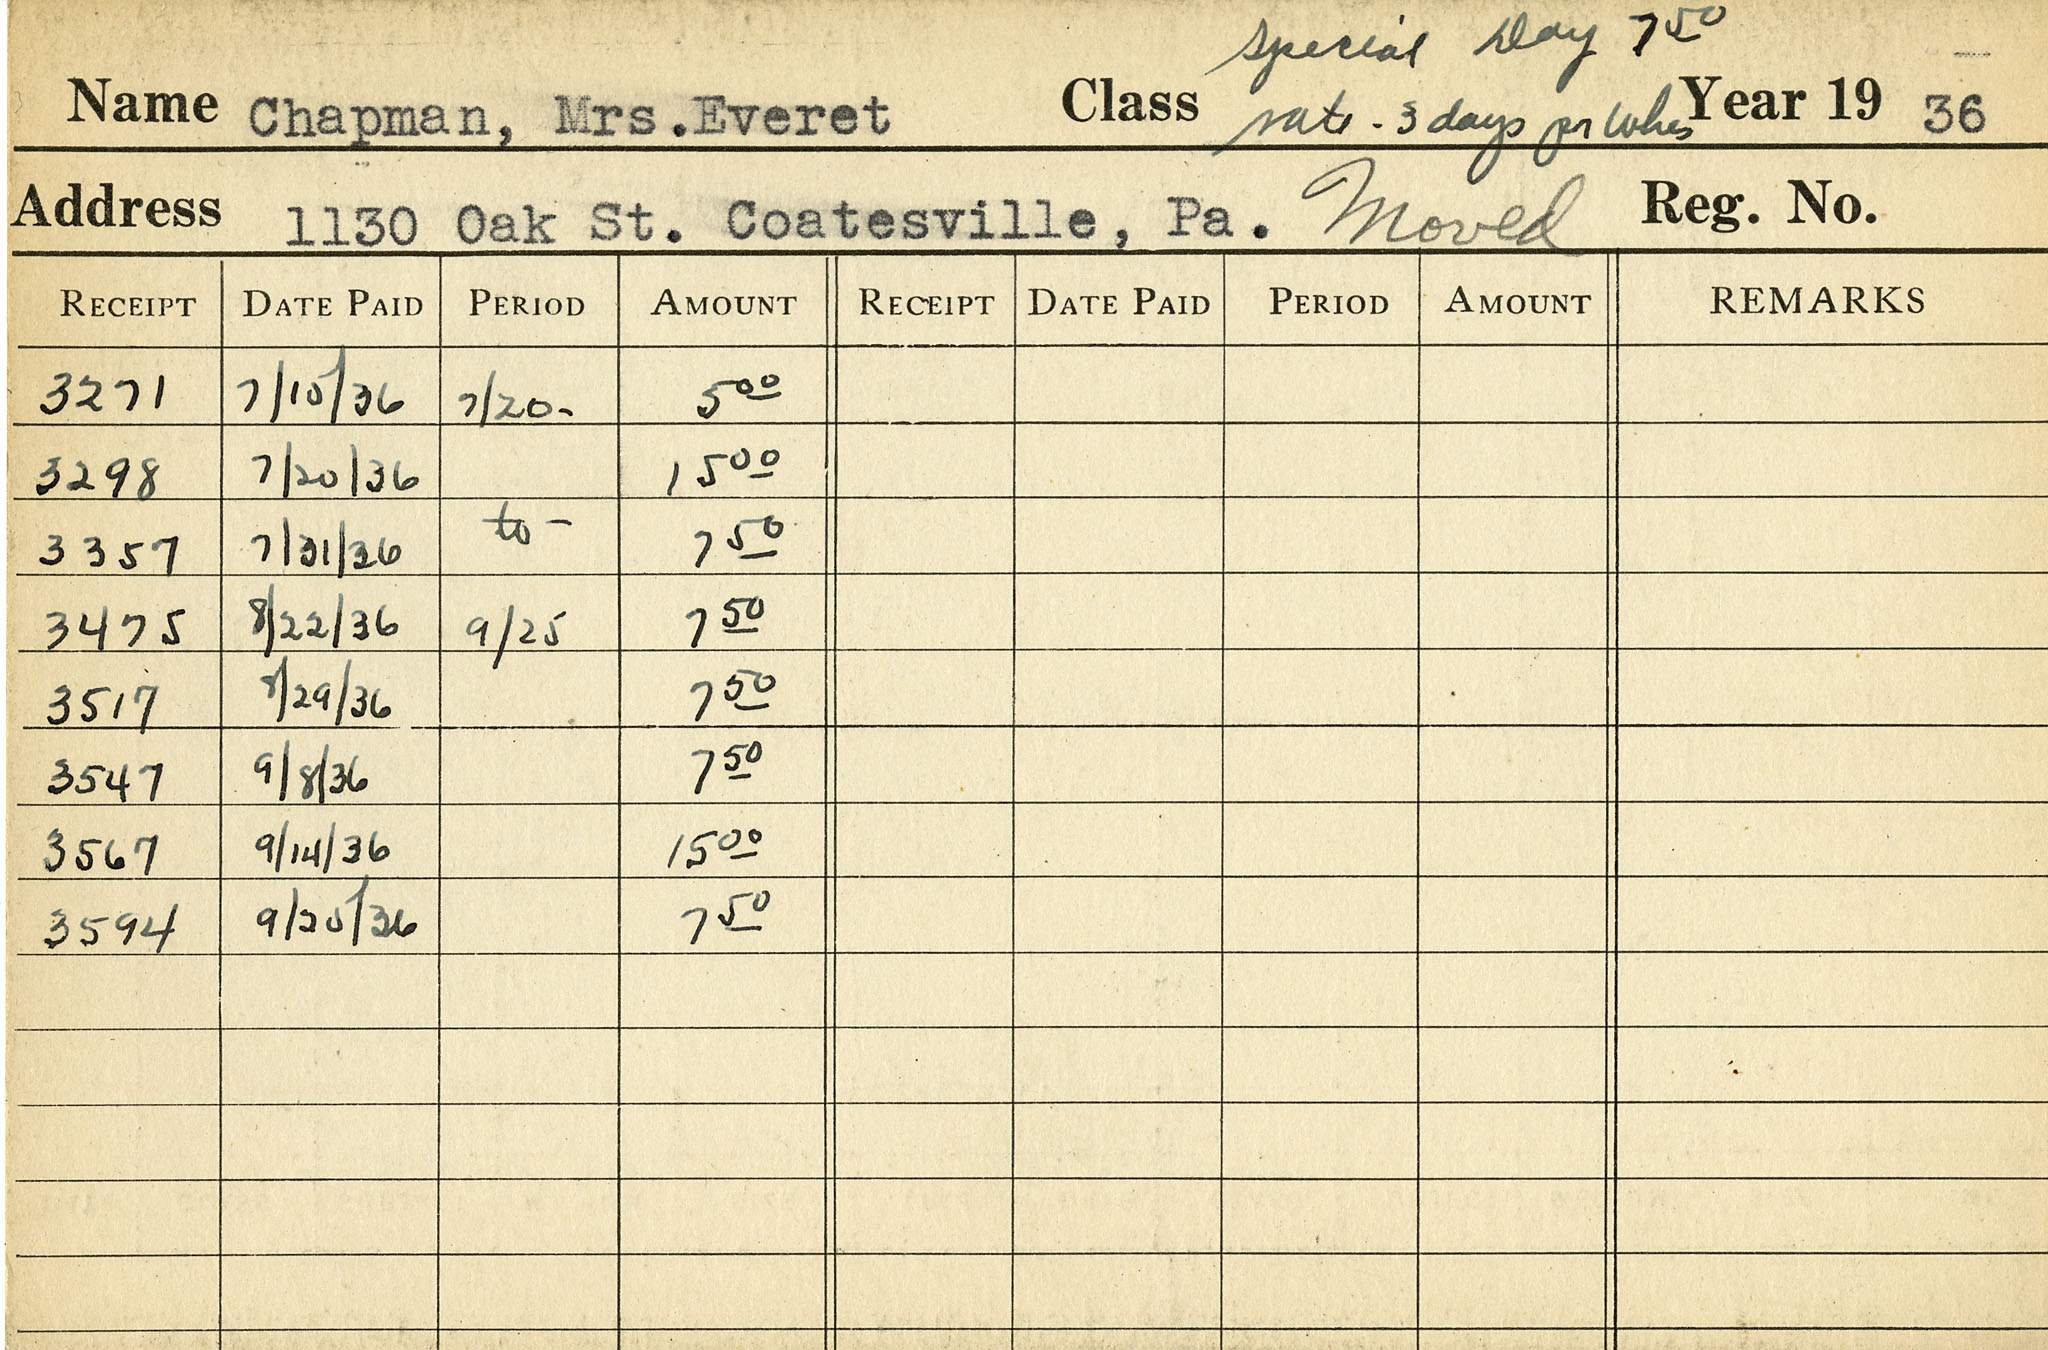 Special Day 7 50
Name Chapman, Mrs.Everet Class rate - 3 days per Year 19 36
Address 1130 Oak St. Coatesville, Pa. Moved Reg. No.
RECEIPT DATE PAID PERIOD AMOUNT RECEIPT DATE PAID PERIOD AMOUNT REMARKS
3271 7/10/36 7/20- 5 00
3298 7/20/36 15 00
3357 7/31/36 to - 7 50
3475 8/22/36 9/25 7 50
3517 8/29/36 7 50
3547 9/8/36 7 50
3567 9/14/36 15 00
3594 9/20/36 7 50